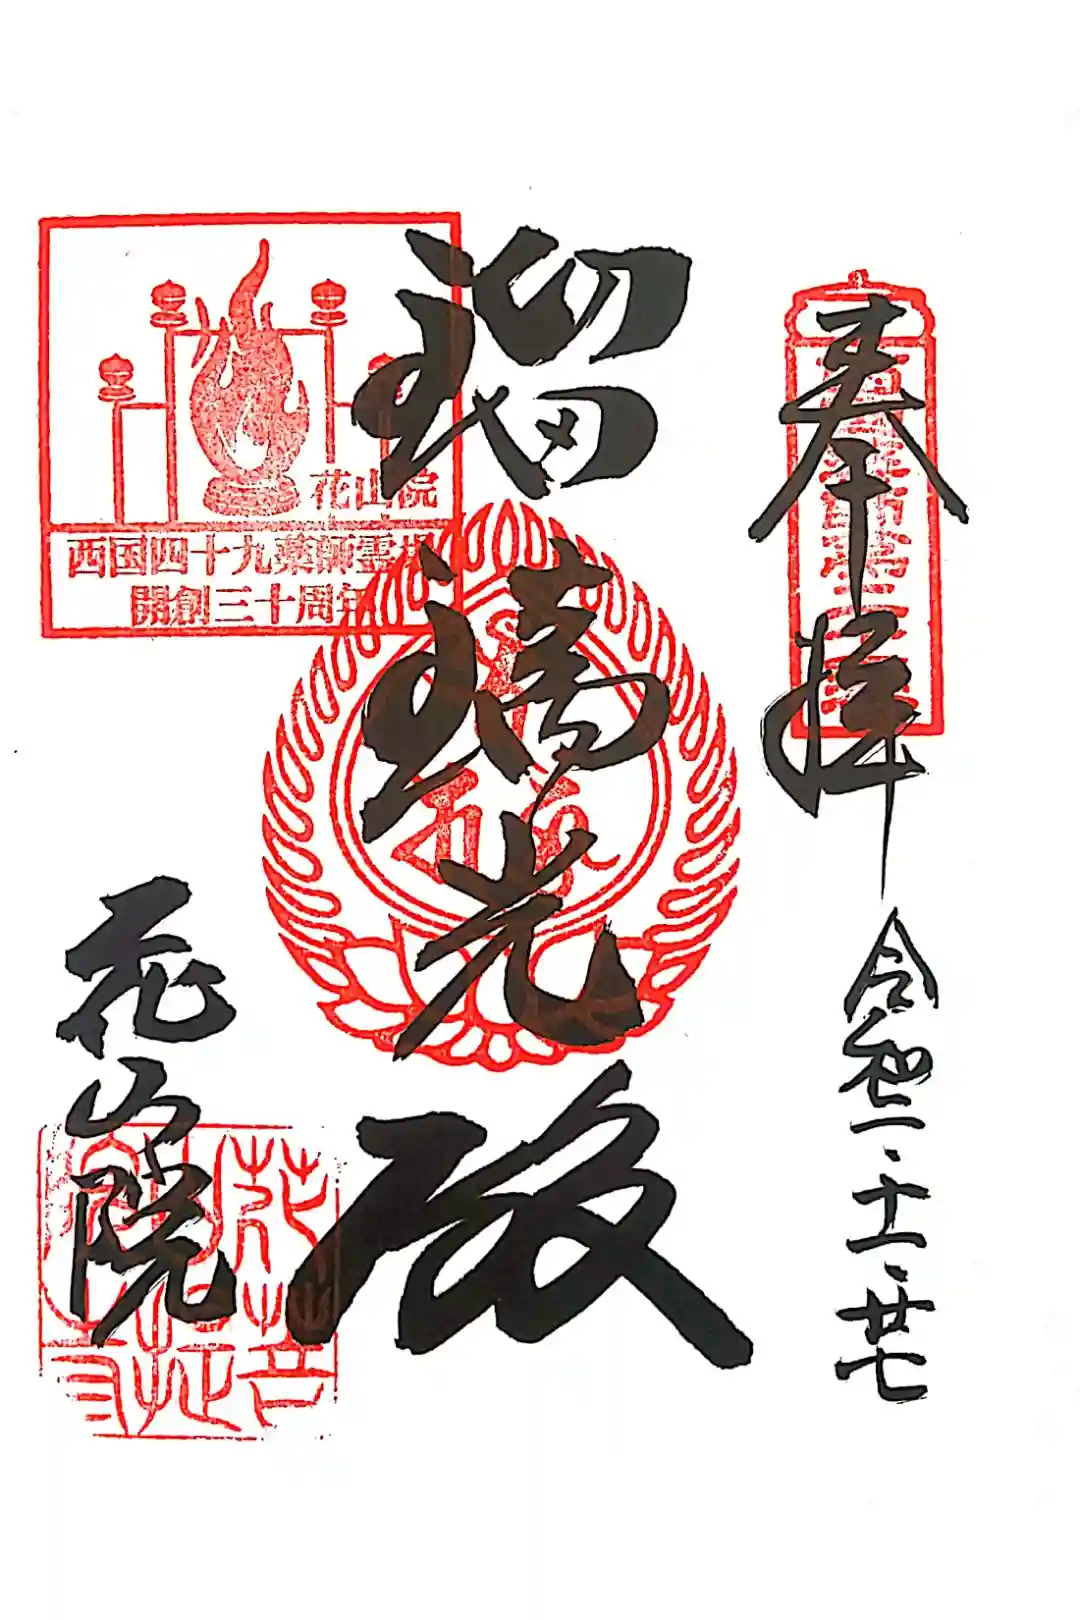 奉拝 令和二・十一・廿七
瑠璃光殿
花山院
花山院
西国四十九薬師霊場
開創三十周年